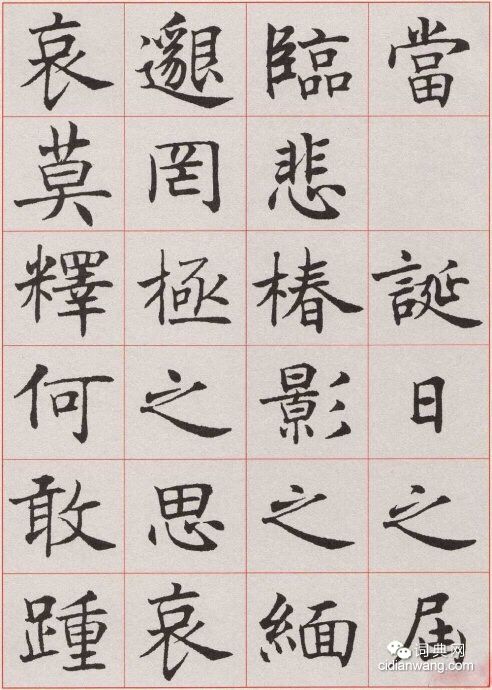 當誕日之届
臨悲椿影之緬
邈罔極之思哀
哀莫釋何敢踵
词典网
cidianwang.com